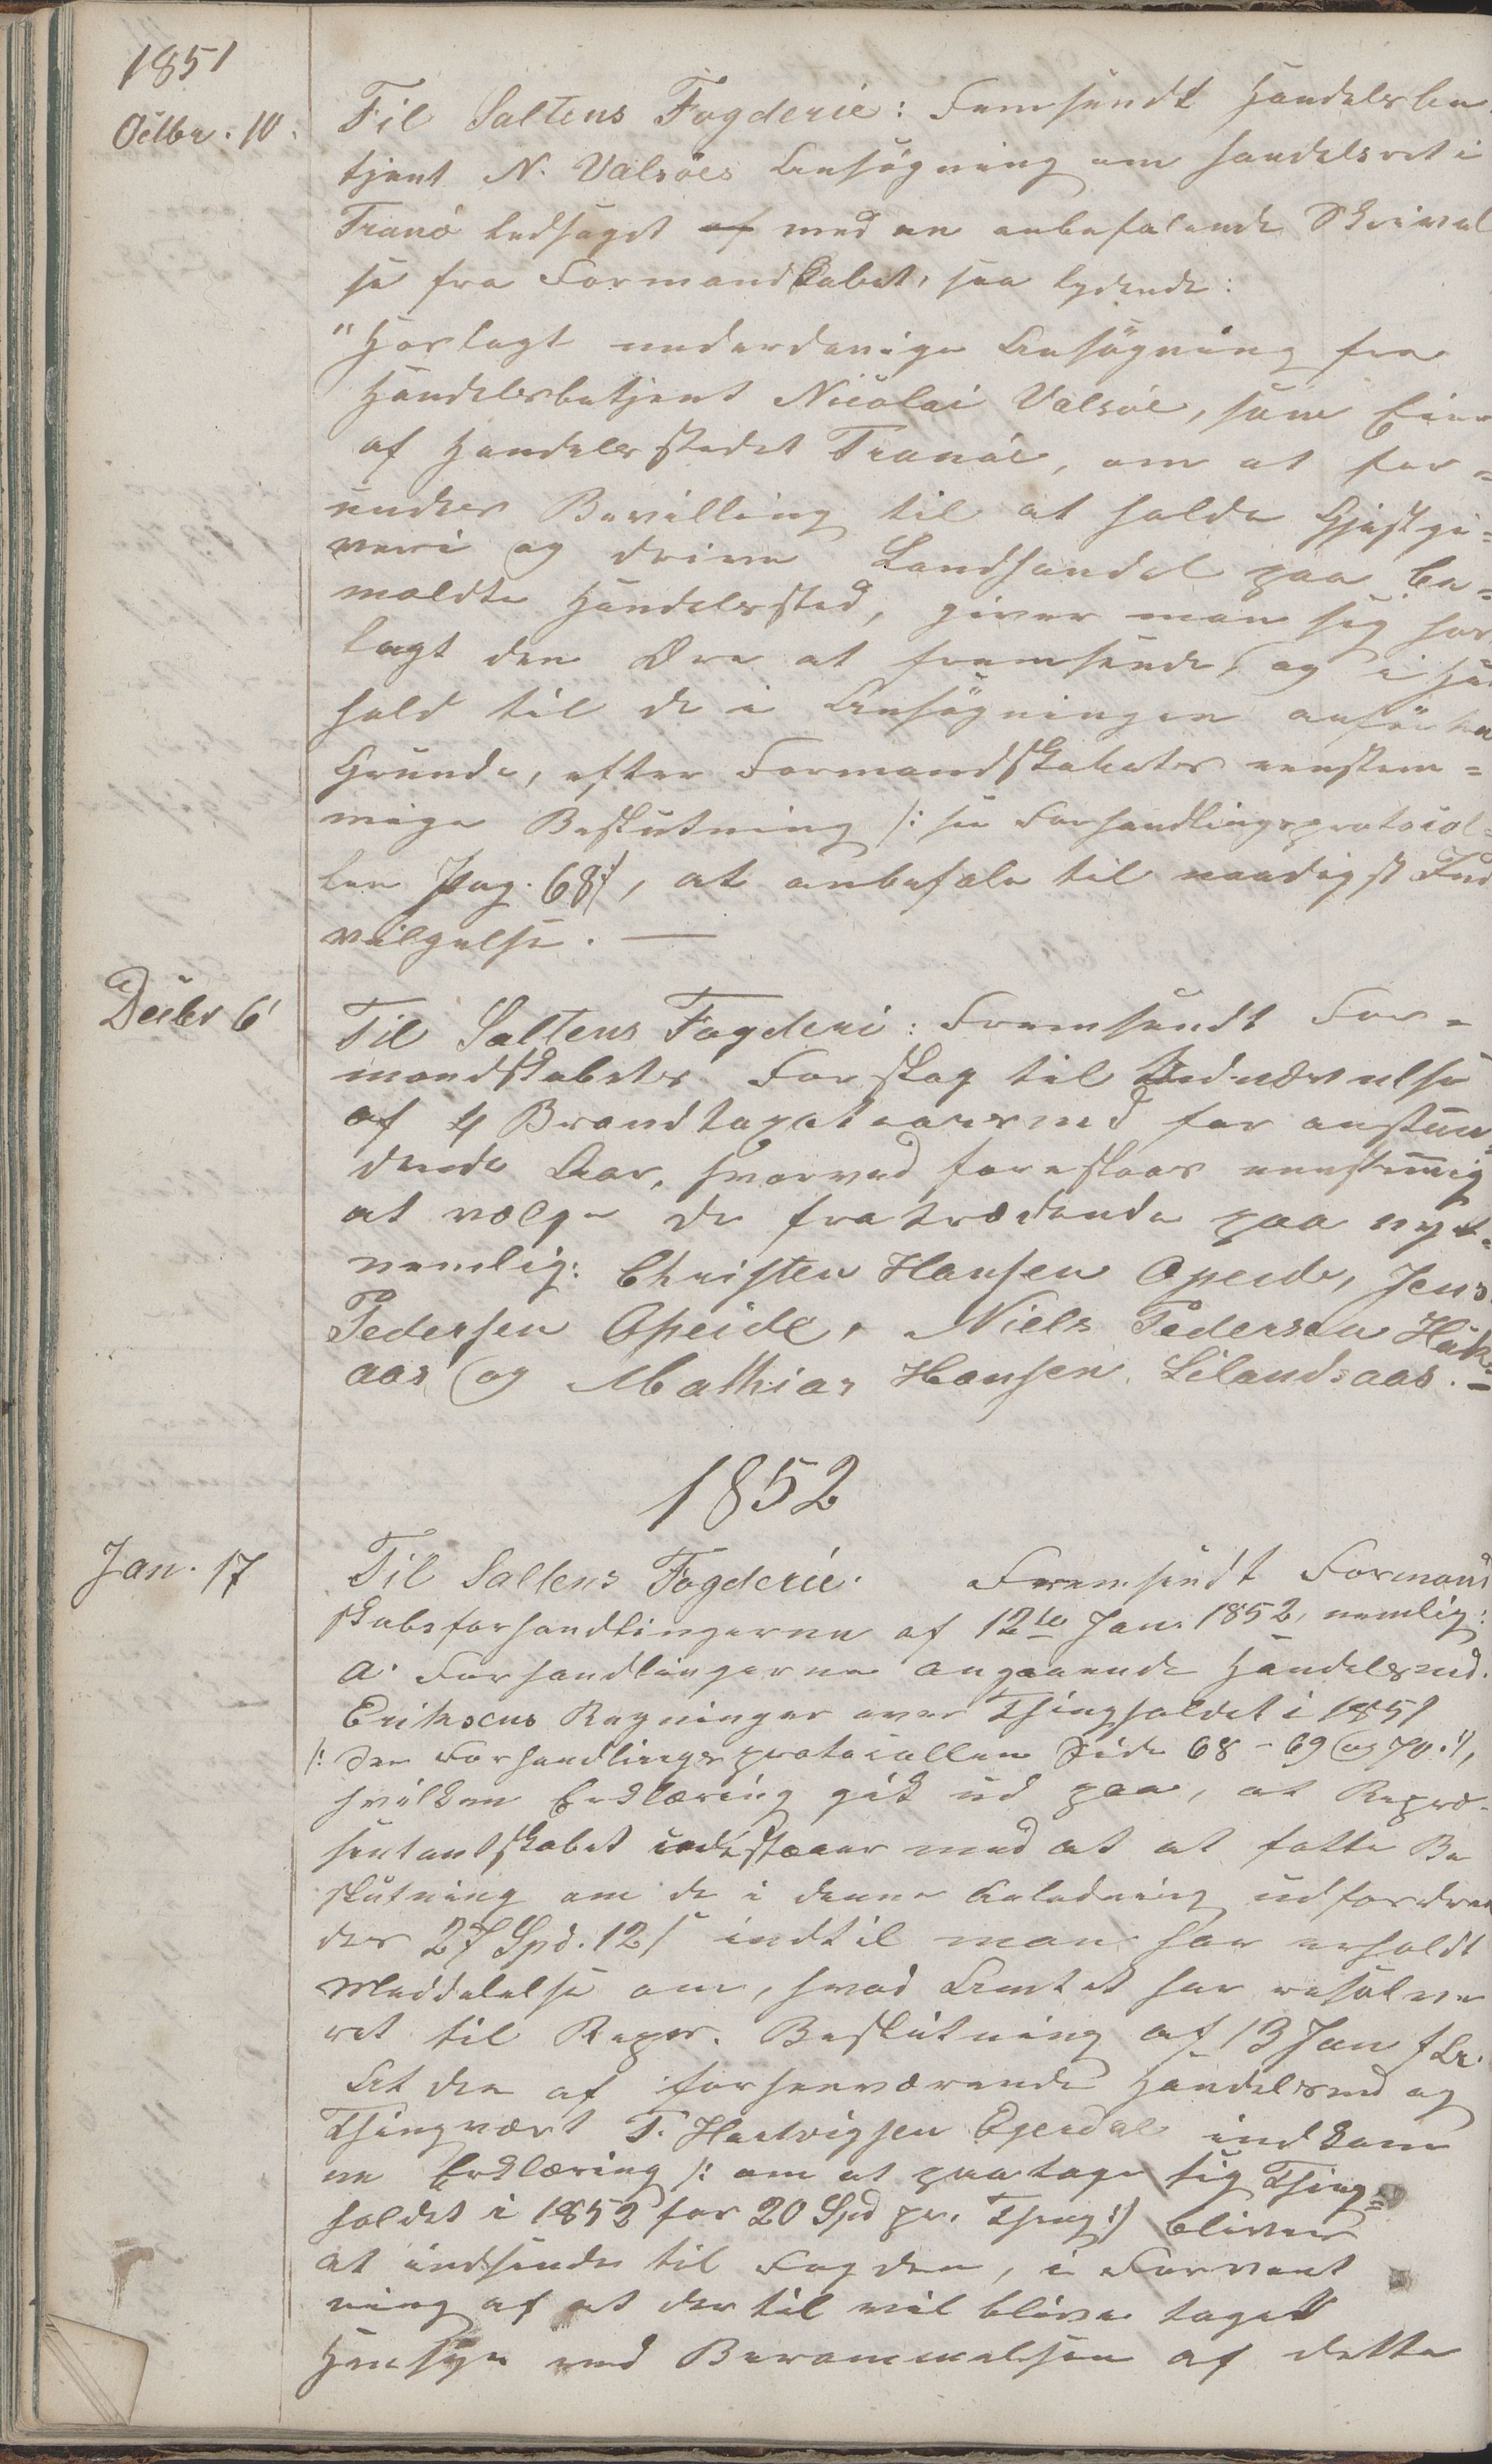 1851
Octbr. 10.
Til Saltens Fogderie: Fremsendt Handelsbe-
tjent N. Valsöes Ansögning om Handelsret i
Tranö ledsaget af med en anbefalende Skrivel
se fra Formandskabet, saa lydende:
"Hoslagt underdanige Ansögning fra
Handelsbetjent Nicolai Valsöe, som Eier
af Handelsstedet Tranöe, om at for=
undes Bevilling til at holde Gjæstgi=
veri og drive Landhandel paa be=
meldte Handelssted, giver man sig her
lagt den Ære at fremsende, og i Hen
hold til de i Ansögningen anförte
Grunde, efter Formandskabets eenstem=
mige Beslutning /: se Forhandlingsprotocol=
len Pag. 68 :/, at anbefale til naadigst Ind
vilgelse. —
Decbr 6
Til Saltens Fogderi: Fremsendt For=
mandskabets Forslag til Udnævnelse
af 4 Brandtaxationsmd for anstun=
dende Aar, hvorved foreslaaes eenstemig
at vælge de fratrædende paa nyt.
nemlig: Christen Hansen Opeide, Jens
Pedersen Opeide, Niels Pedersen Hak
aas og Mathias Hansen Lilandsaas. -
1852
Jan. 17
Til Saltens Fogderie. Fremsendt Formand
skabsforhandlingerne af 12te Jan. 1852, nemlig:
a. Forhandlingerne angaaende Handelsmd.
Eriksens Regninger over Thingholdet i 1851
/: See Forhandlingsprotocollen Side 68 - 69 og 70 :/,
hvilken Erklæring gik ud paa, at Repræ-
sentantskabet indestaaer med at at fatte Be
slutning om de i denne Anledning udfordren
des 27 Spd. 12 s indtil man har erholdt
Meddelelse om, hvad Amtet har resolve
ret til Repr. Beslutning af 13 Jan f. A.
At den af forhenværende Handelsmd og
Thingvært T. Hartvigsen indkom
ne Erklæring /: om at paatage sig Thing=
holdet i 1852 for 20 Spd pr. Thing :/ bliver
at indsende til Fogden, i Forvent
ning af at dertil vil blive taget
Hensyn ved Berammelsen af dette